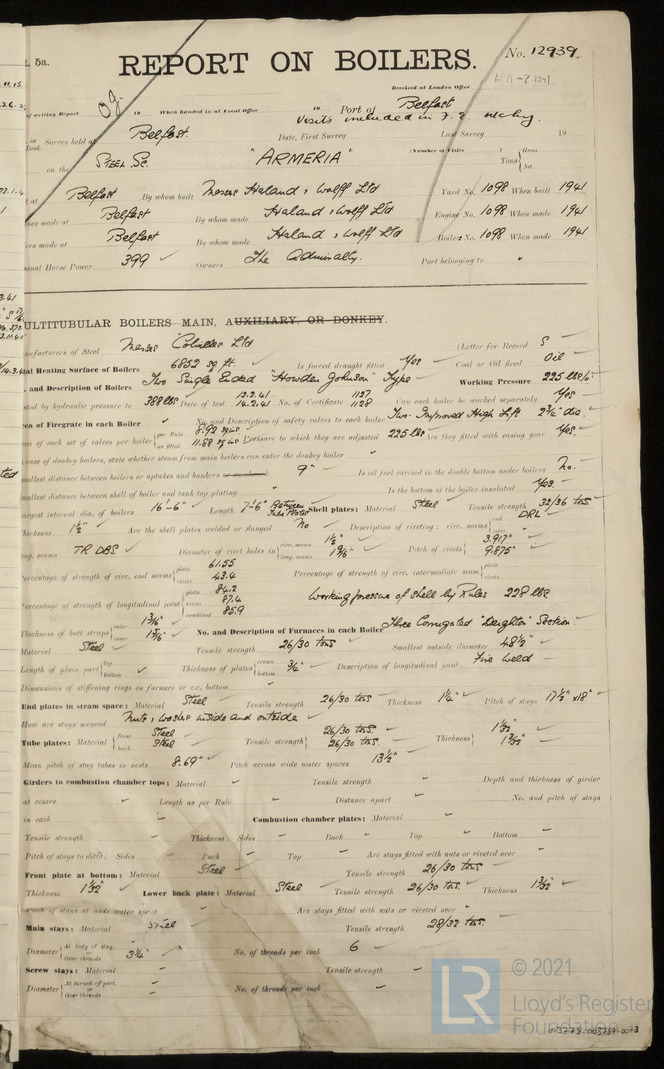 t. 5a.
REPORT ON BOILERS.
No. 12939.
APR -7 1941
Received at London Office
of writing Report 19 When handed in at Local Office 19 Port of Belfast
Visits included in
in Survey held at Belfast. Date, First Survey Last Survey 19
Book.
on the Steel Sc. "ARMERIA" (Number of Visits ) Tons Gross Net
at Belfast By whom built Messrs Haland & Wolff Ltd Yard No. 1098 When built 1941
made at Belfast By whom made Haland & Wolff Ltd Engine No. 1098 When made 1941
made at Belfast By whom made Haland & Wolff Ltd Boiler No. 1098 When made 1941
Nominal Horse Power 399 Owners The Admiralty. Port belonging to
ULTITUBULAR BOILERS MAIN, AUXILIARY, OR DONKEY.
nufacturers of Steel Messrs Colvilles Ltd (Letter for Record S
al Heating Surface of Boilers 6852 sq ft. Is forced draught fitted Yes Coal or Oil fired Oil
. and Description of Boilers Two Single Ended "Howden Johnson" Type Working Pressure 225 lbs/
ted by hydraulic pressure to 388 lbs Date of test 12.2.41 14.2.41 No. of Certificate 1127 1128 Can each boiler be worked separately Yes
ea of Firegrate in each Boiler No. and Description of safety valves to each boiler Two. Improved High Lift 2¾" dia.
ea of each set of valves per boiler per Rule 8.92 as fitted 11.88 Pressure to which they are adjusted 225 lbs Are they fitted with easing gear Yes.
case of donkey boilers, state whether steam from main boilers can enter the donkey boiler
mallest distance between boilers or uptakes and bunkers or woodwork 9" Is oil fuel carried in the double bottom under boilers No.
mallest distance between shell of boiler and tank top plating Is the bottom of the boiler insulated Yes.
argest internal dia. of boilers 16'-6" Length 7'-6" Between Tube Plates Shell plates: Material Steel Tensile strength 32/36 tons.
hickness 1½" Are the shell plates welded or flanged No Description of riveting: circ. seams end DRL
ong. seams TR DBS. Diameter of rivet holes in circ. seams 1½" long. seams Pitch of rivets 3.917" 9.875"
ercentage of strength of circ. end seams plate 61.55 rivets 43.4 Percentage of strength of circ. intermediate seam plate rivets
ercentage of strength of longitudinal joint plate 84.2 rivets 87.4 combined 85.9 Working pressure of shell by Rules 228 lbs
Thickness of butt straps outer inner No. and Description of Furnaces in each Boiler Three Corrugated "Deighton" Section
Material Steel Tensile strength 26/30 tons Smallest outside diameter 48½"
Length of plain part top bottom Thickness of plates crown bottom ¾" Description of longitudinal joint Fire Weld
Dimensions of stiffening rings on furnace or c.c. bottom
End plates in steam space: Material Steel Tensile strength 26/30 tons Thickness 1¼" Pitch of stays 17½" x 18"
How are stays secured Nuts & washers inside and outside
Tube plates: Material front Steel back Steel Tensile strength 26/30 tons. 26/30 tons. Thickness
Mean pitch of stay tubes in nests 8.69" Pitch across wide water spaces 13½"
Girders to combustion chamber tops: Material Tensile strength Depth and thickness of girder
at centre Length as per Rule Distance apart No. and pitch of stays
in each Combustion chamber plates: Material
Tensile strength Thickness: Sides Back Top Bottom
Pitch of stays to ditto: Sides Back Top Are stays fitted with nuts or riveted over
Front plate at bottom: Material Steel Tensile strength 26/30 tons
Thickness Lower back plate: Material Steel Tensile strength 26/30 tons. Thickness
Pitch of stays at wide water space Are stays fitted with nuts or riveted over
Main stays: Material Steel Tensile strength 28/32 tons.
Diameter At body of stay, or Over threads 3¼" No. of threads per inch 6
Screw stays: Material Tensile strength
Diameter At turned off part, or Over threads No. of threads per inch
LR © 2021
Lloyd's Register
Foundation